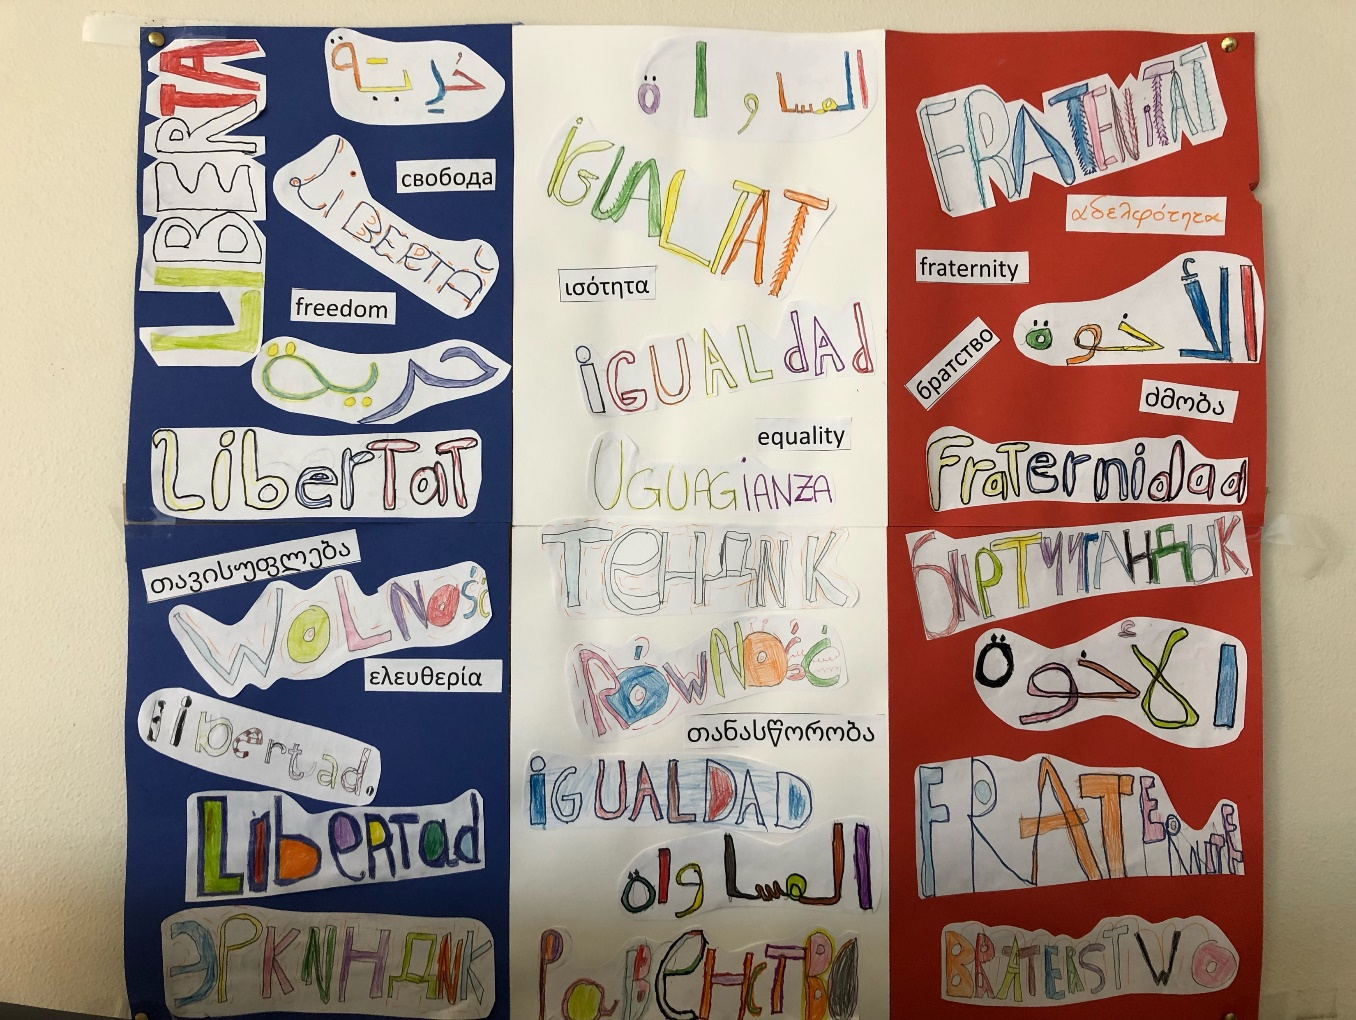 LIBERTA
حُرية
LIBERTÀ
свобода
freedom
حرية
LiberTaT
თავისუფლება
WOLNOŚĆ
ελευθερία
libertad.
LIbeRTad
ЭРКИНДИК
المساواة
iGUALTAT
ισότητα
iGUALdAd
equality
UGUAGiANZA
ТЕНДИК
RÓWNOŚĆ
თანასწორობა
iGUALDAD
المساواة
РаВЕНсТВО
FRATENiTAT
αδελφότητα
fraternity
الأخوة
братство
ძმობა
FraTernidad
БИРТУУГАНДЫК
الاخوة
FRATERNiTÉ
BRATERSTWO